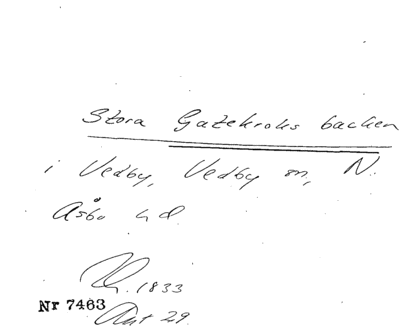 Stora Gatekroks backen
i Vedby, Vedby sn, N.
Åsbo hd.
1833
Nr 7463
Ant 29